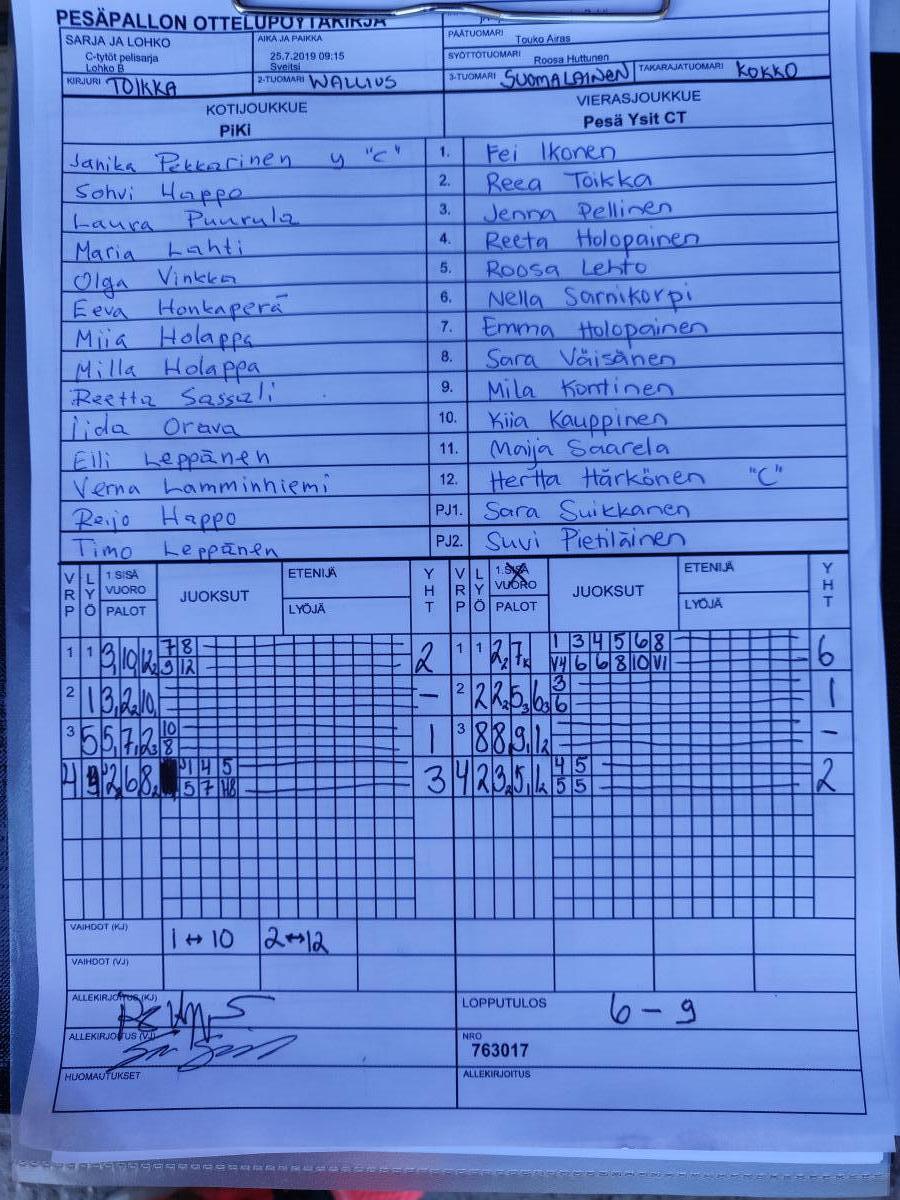 PESÄPALLON OTTELUPÖYTÄKIRJA
SARJA JA LOHKO
C-tytöt pelisarja
Lohko B
AIKA JA PAIKKA
25.7.2019 09:15
Sveitsi
PÄÄTUOMARI Touko Airas
SYÖTTÖTUOMARI Roosa Huttunen
KIRJURI TOIKKA
2-TUOMARI WALLIUS
3-TUOMARI SUOMALAINEN
TAKARAJATUOMARI KOKKO
KOTIJOUKKUE
PiKi
VIERASJOUKKUE
Pesä Ysit CT
Janika Pekkarinen y "C" 1. Fei Ikonen
Sohvi Happo 2. Reea Toikka
Laura Puurula 3. Jenna Pellinen
Maria Lahti 4. Reeta Holopainen
Olga Vinkka 5. Roosa Lehto
Eeva Honkaperä 6. Nella Sarnikorpi
Miia Holappa 7. Emma Holopainen
Milla Holappa 8. Sara Väisänen
Reetta Sassali 9. Mila Kontinen
Iida Orava 10. Kiia Kauppinen
Elli Leppänen 11. Maija Saarela
Verna Lamminniemi 12. Hertta Härkönen "C"
Reijo Happo PJ1. Sara Suikkanen
Timo Leppänen PJ2. Suvi Pietiläinen
VRP LYÖ 1.SISÄ VUORO PALOT JUOKSUT ETENIJÄ LYÖJÄ YHT VRP LYÖ 1.SISÄ VUORO PALOT JUOKSUT ETENIJÄ LYÖJÄ YHT
1 1 7 8 2 1 1 1 3 4 5 6 8 6
9 12 V4 6 6 8 10 V1
2 1 – 2 2 3 1
6
3 5 10 1 3 8 –
8
4 9 1 4 5 3 4 2 4 5 2
5 7 5 5
VAIHDOT (KJ) 1 ↔ 10 2 ↔ 12
VAIHDOT (VJ)
ALLEKIRJOITUS (KJ)
LOPPUTULOS 6 – 9
ALLEKIRJOITUS (VJ)
NRO
763017
HUOMAUTUKSET
ALLEKIRJOITUS